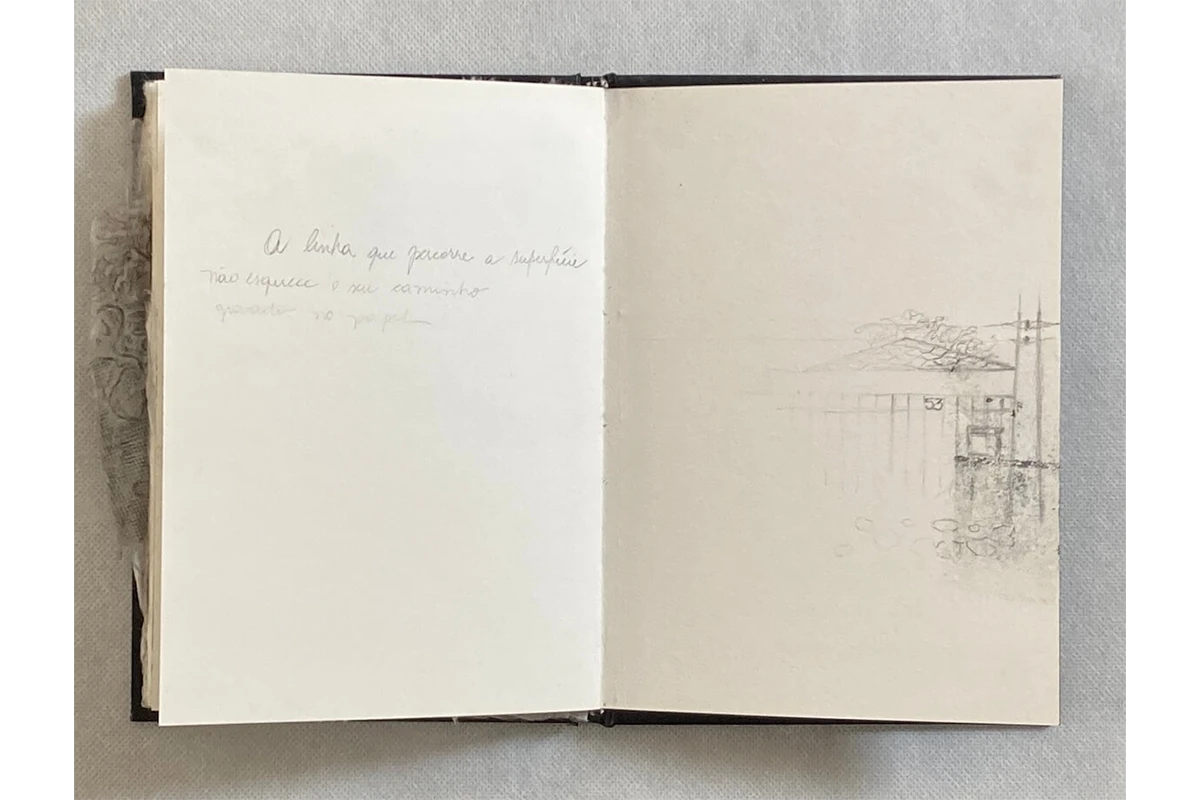 A linha que percorre a superfície
não esquece o seu caminho
gravado no papel
53